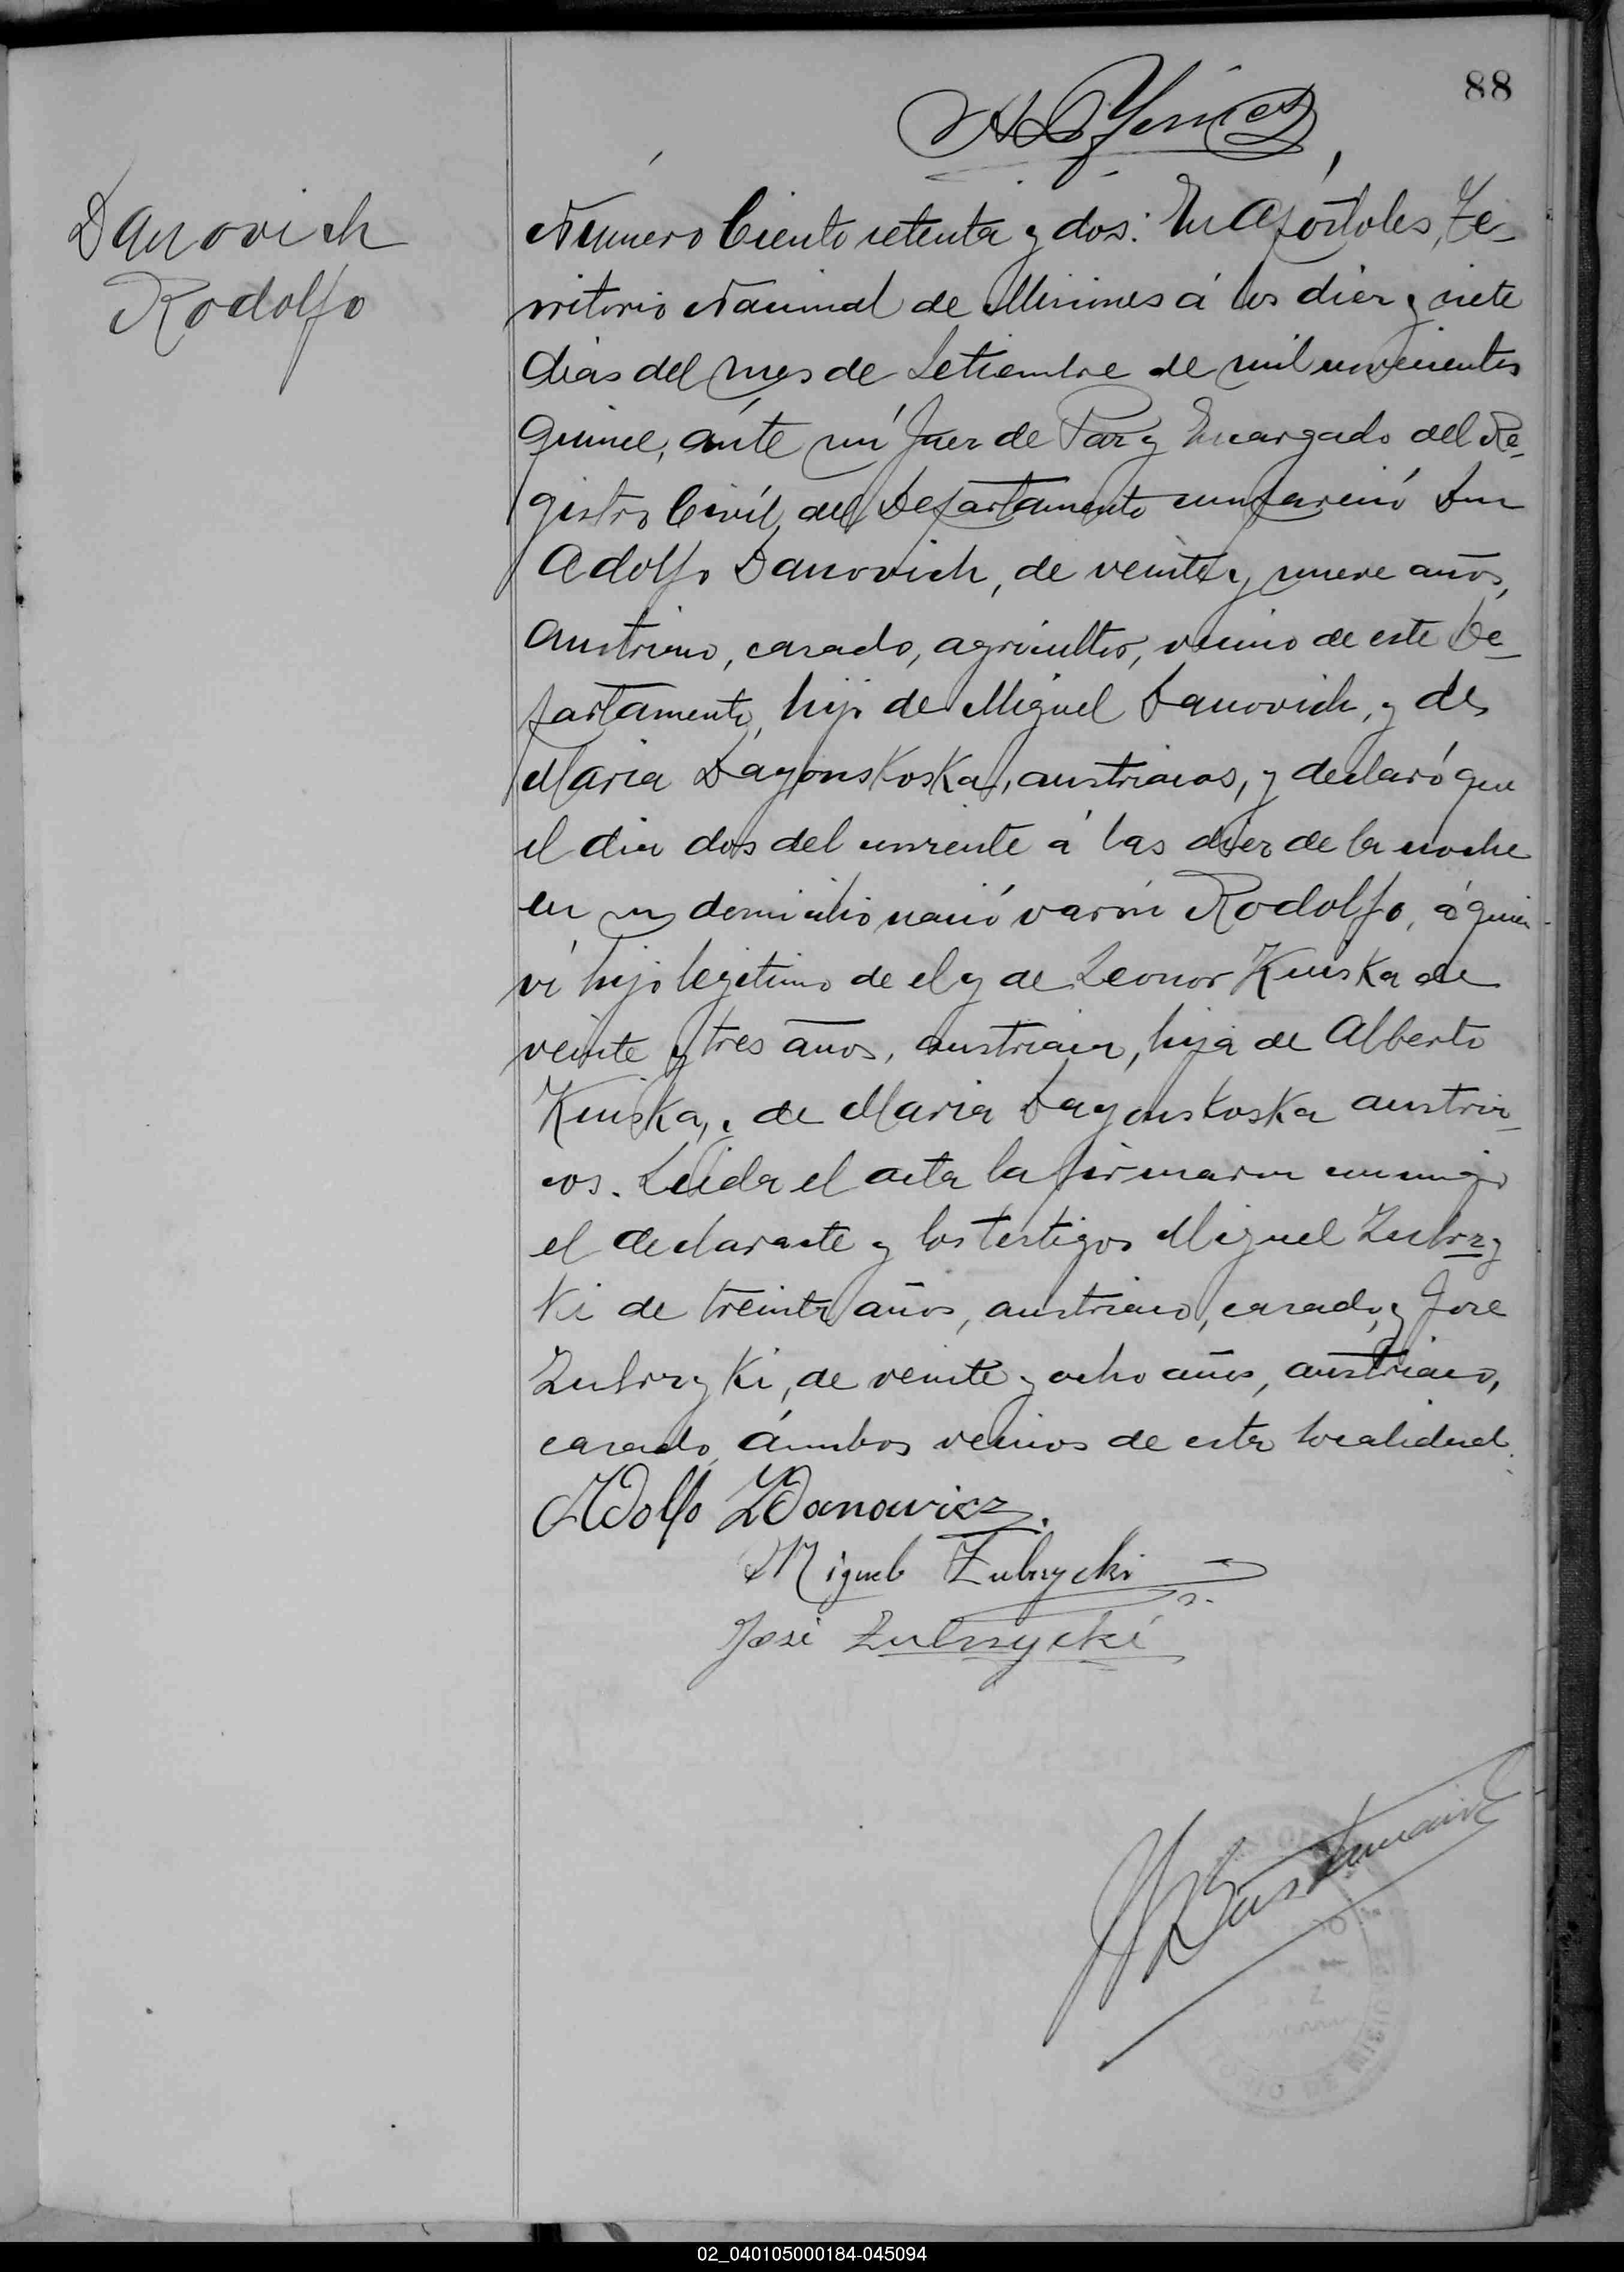 88
Danovich
Rodolfo
Número Ciento setenta y dos: En Apóstoles, Te-
rritorio Nacional de Misiones á los diez y siete
dias del mes de Setiembre de mil novecientos
quince, ánte mi Juez de Paz y Encargado del Re-
gistro Civil del Departamento compareció Don
Adolfo Danovich, de veinte y nueve años,
austriaco, casado, agricultor, vecino de este De-
partamento, hijo de Miguel Danovich, y de
Maria Dayonskoska, austriacos, y declaró que
el dia dos del corriente á las diez de la noche
en su domicilio nació varon Rodolfo, á quien
vi hijo legitimo de el y de Leonor Kuiska de
veinte y tres años, austriaca, hija de Alberto
Kuiska, y de Maria Dayonskoska austria-
cos. Leida el acta la firmaron conmigo
el declarante y los testigos Miguel Zubrzy
ki de treinta años, austriaco, casado, y Jose
Zubrzyki, de veinte y ocho años, austriaco,
casado, ámbos vecinos de esta localidad.
Adolfo Zdanowicz.
Miguel Zubrzycki
José Zubrzycki
02_040105000184-045094